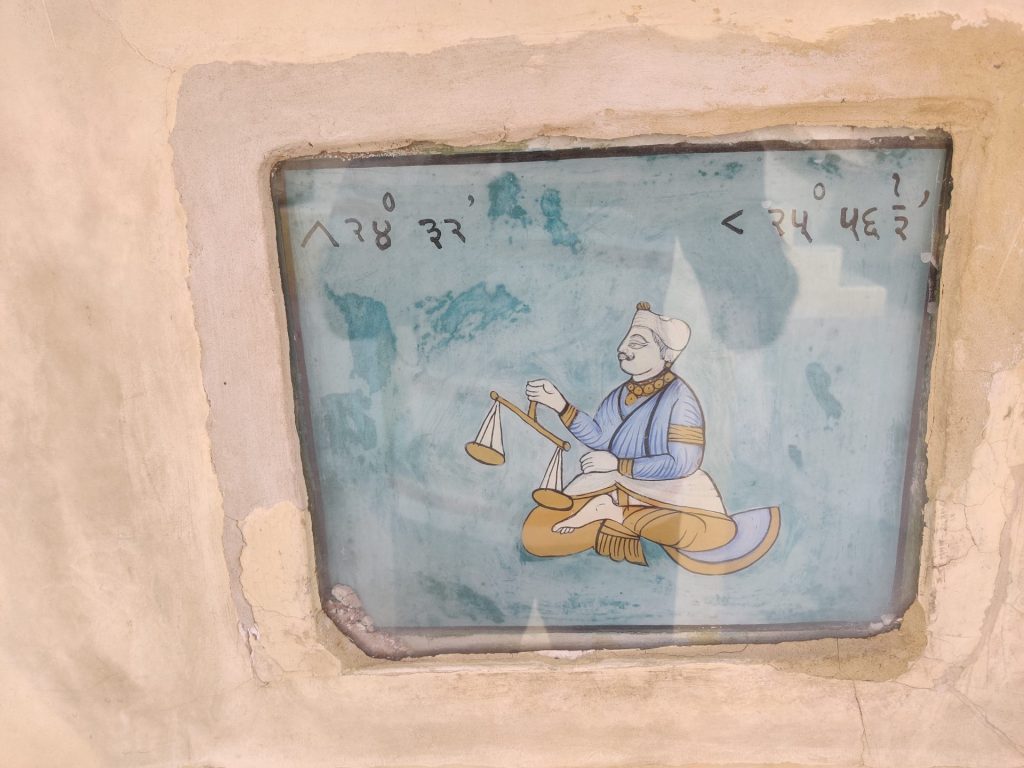 ∧ २४° ३२' < २५° ५६ १/२'